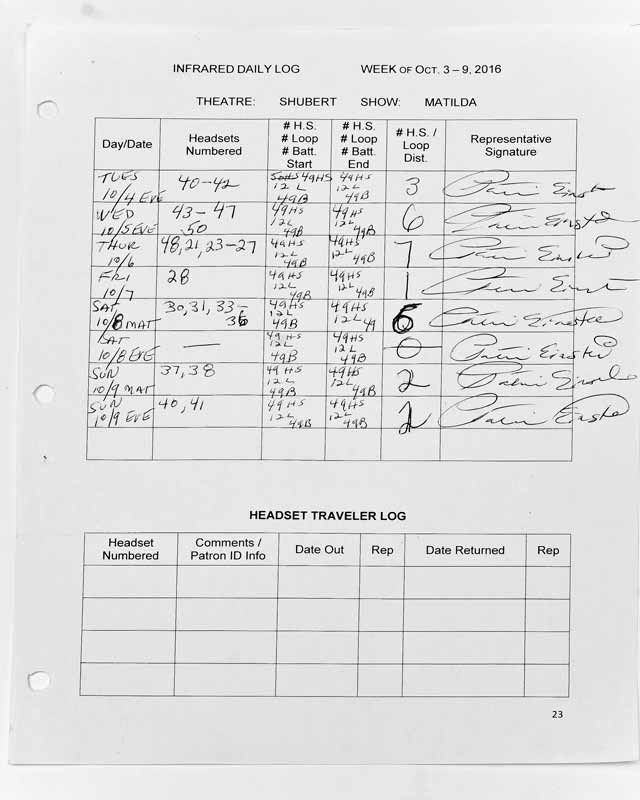 INFRARED DAILY LOG WEEK OF OCT. 3 – 9, 2016
THEATRE: SHUBERT SHOW: MATILDA
Day/Date
Headsets
Numbered
# H.S.
# Loop
# Batt.
Start
# H.S.
# Loop
# Batt.
End
# H.S. /
Loop
Dist.
Representative
Signature
TUES
10/4 EVE
40-42
49HS
12 L
49B
49HS
12 L
49B
3
WED
10/5 EVE
43-47
50
49HS
12L
49B
49HS
12L
49B
6
THUR
10/6
48,21,23-27
49HS
12L
49B
49HS
12L
49B
7
FRI
10/7
28
49HS
12L
49B
49HS
12L
49B
1
SAT
10/8 MAT
30,31,33-
36
49HS
12L
49B
49HS
12L 49
6
SAT
10/8 EVE
—
49HS
12L
49B
49HS
12L
49B
0
SUN
10/9 MAT
37,38
49HS
12L
49B
49HS
12L
49B
2
SUN
10/9 EVE
40,41
49HS
12L
49B
49HS
12L
49B
2
HEADSET TRAVELER LOG
Headset
Numbered
Comments /
Patron ID Info
Date Out
Rep
Date Returned
Rep
23